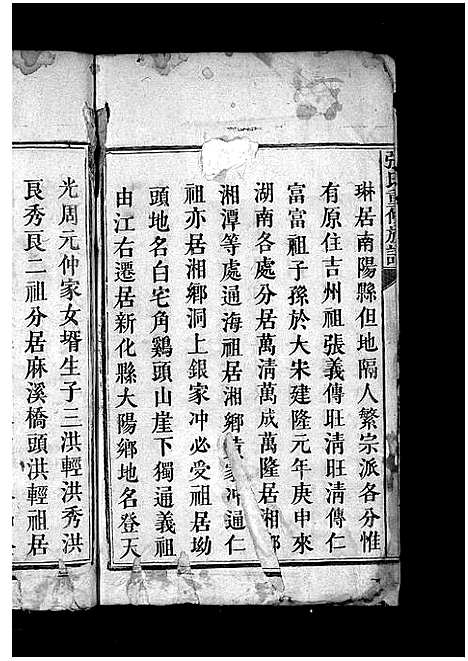 張氏重修族譜
琳居南陽縣但地隔人繁宗派各分惟
有原住吉州祖張義傳旺淸旺淸傳仁
富富祖子孫於大宋建隆元年庚申來
湖南各處分居萬淸萬成萬隆居湘鄉
湘潭等處通海祖居湘鄉黃家冲通仁
祖亦居湘鄉洞上銀家冲必受祖居坳
頭地名白宅角鷄頭山崖下獨通義祖
由江右遷居新化縣大陽鄉地名登天
光周元仲家女壻生子三洪輕洪秀洪
良秀良二祖分居麻溪橋頭洪輕祖居